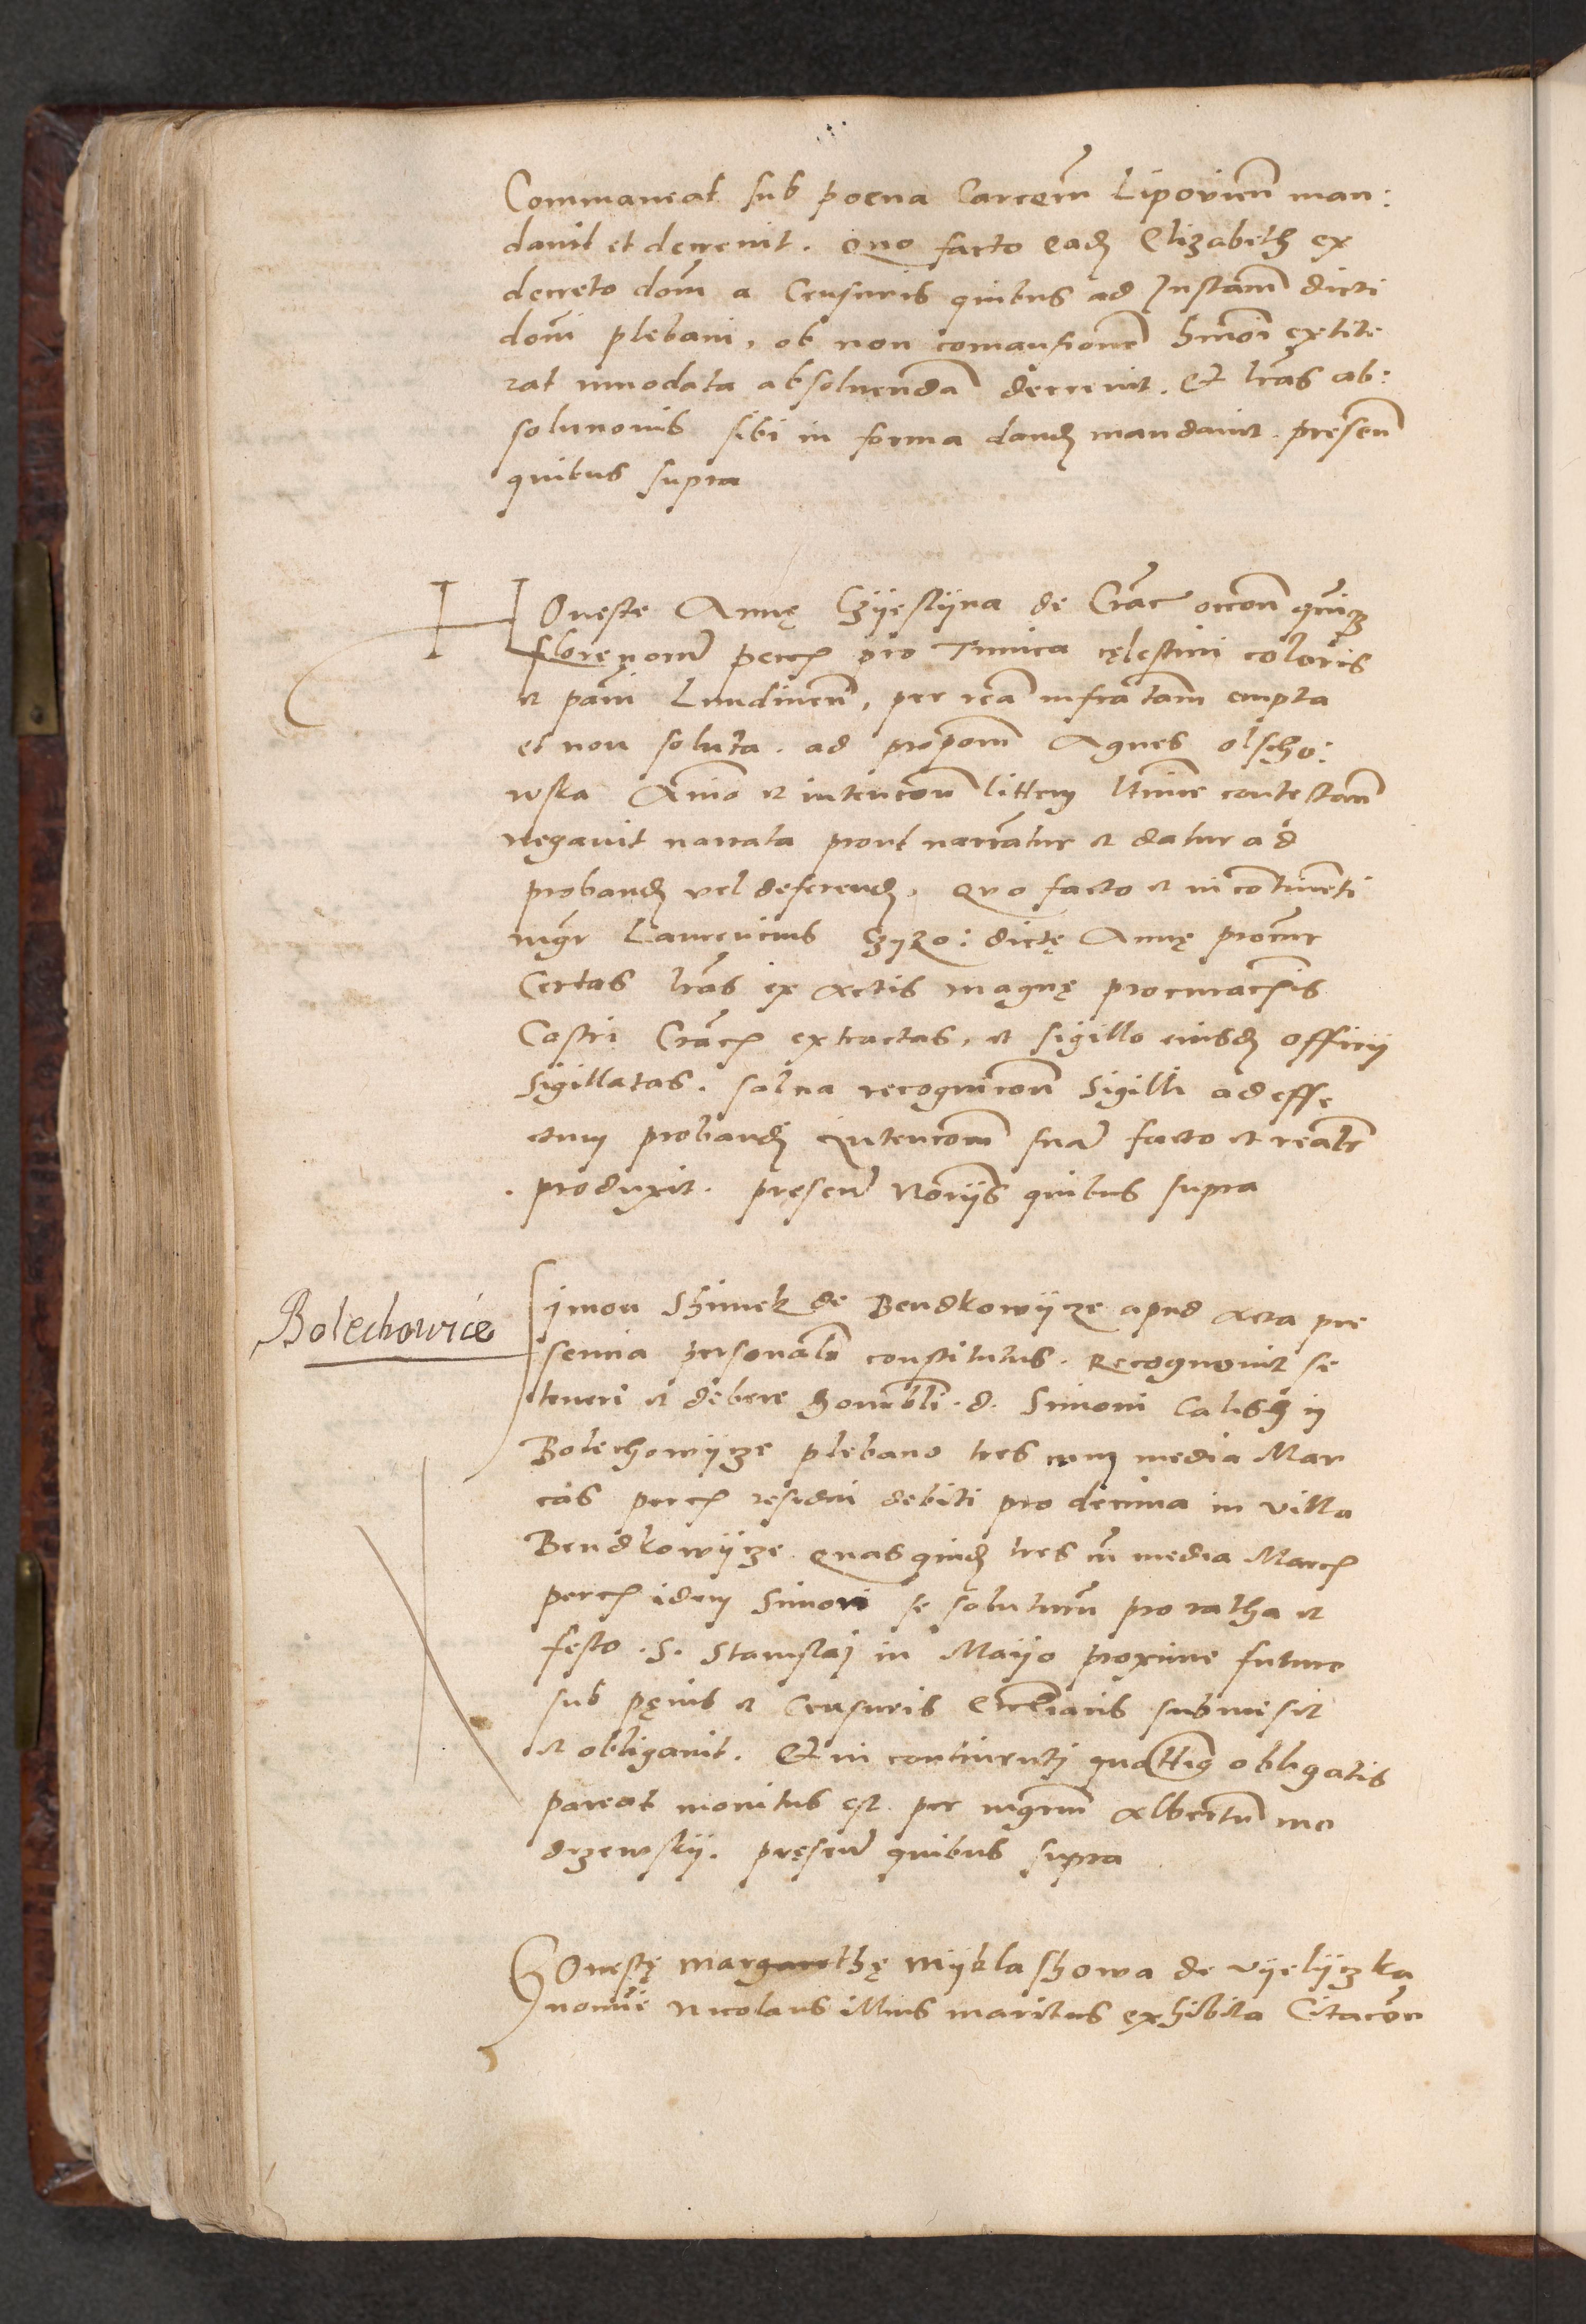 Commaneat sub poena Carcerum Lipovien man:
davit et decrevit. Quo facto eadem Elizabeth ex
decreto dom a Censuris quibus ad Instam dicti
domi plebani, ob non comansionem hmoi extite
rat innodata absolvenda decrevit. Et lras ab:
solutionis sibi in forma dand mandavit. presen
quibus supra
Honeste Annę Czyeslyna de Crac occon
florenorum pecc pro Tunica cęlestini coloris
et pani Lundinen, per rea infratam empta
et non soluta. ad proposm Agnes olscho:
wska Animo et intencon littem ltime contestan
negavit narrata prout narrantur et datur ad
proband vel deferend. Quo facto et in continenti
mgr Laurencius dictę Annę procur
Certas lras ex Actis magnę procuracis
Castri Crac extractas, et sigillo eiusd officii
Sigillatas. salva recognicon Sigilli ad effe
ctum proband Intencom sua facto et realr
produxit. presen Noriis quibus supra
Bolechowice
Simon Shimek de Bendkowycze apud Acta pre
sencia personalr constitutus. Recognovit se
teneri et debere honorabli. d. Simoni Calisch in
Bolechowycze plebano tres cum media Mar
cas pecc residui debiti pro decima in villa
Bendkowycze. Quas quid tres cum media Marc
pecc idem Simon se soluturum pro ratha et
festo. S. Stanislaj in Mayo proxime futuro
sub pęnis et Censuris Ecclianis submisit
et obligavit. Et in continentj quattus obligatis
pareat monitus est per mgrum Albertum mo
drzewsky. presen quibus supra
Honestę margarethę Myklashowa de Vyelyczka
nomine Nicolaus illius maritus exhibita Citacone